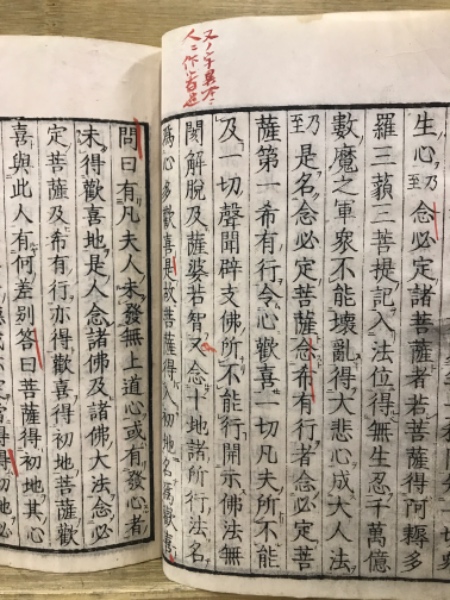 生心乃至念必定諸菩薩者若菩薩得阿耨多
羅三藐三菩提記入法位得無生忍千萬億
數魔之軍衆不能壞亂得大悲心成大人法
乃至是名念必定菩薩念希有行者念必定菩
薩第一希有行令心歡喜一切凡夫所不能
及一切聲聞辟支佛所不能行開示佛法無
閡解脫及薩婆若智又念十地諸所行法名
爲心多歡喜是故菩薩得入初地名爲歡喜
問曰有凡夫人未發無上道心或有發心者
未得歡喜地是人念諸佛及諸佛大法念必
定菩薩及希有行亦得歡喜得初地菩薩歡
喜與此人有何差別答曰菩薩得初地其心